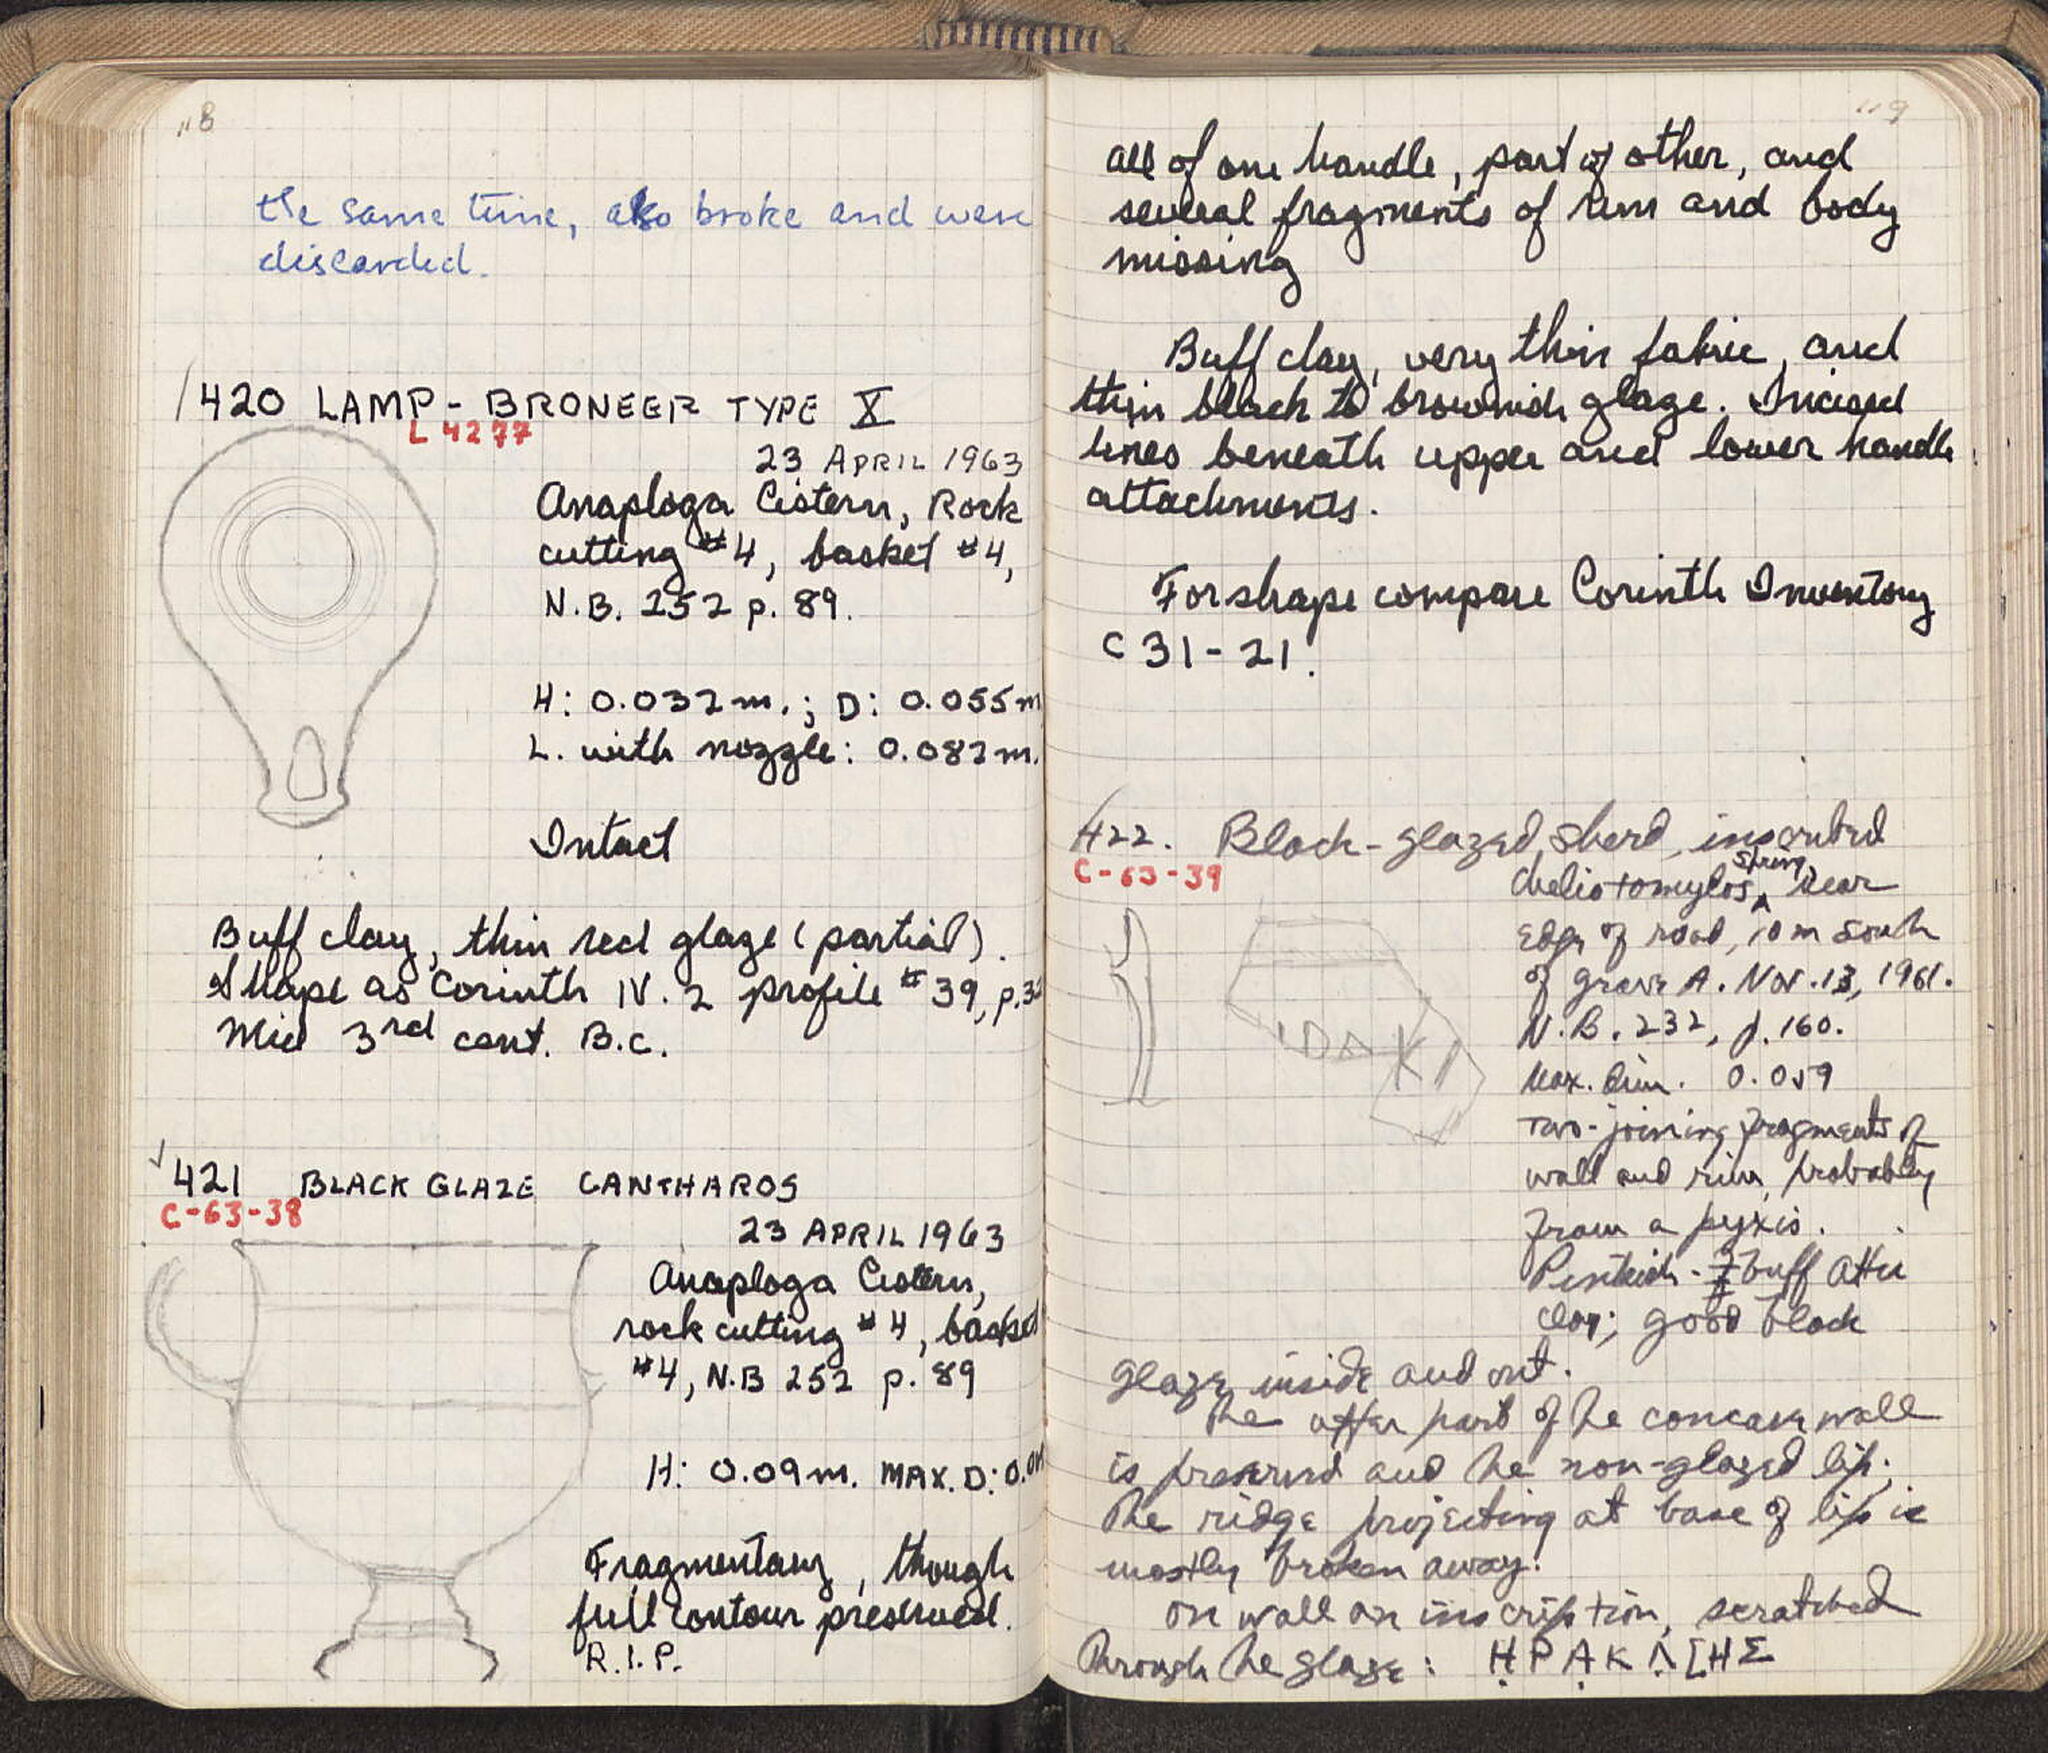 118
the same time, also broke and were
discarded.
420 LAMP - BRONEER TYPE X
L 4277
23 APRIL 1963
Anaploga Cistern, Rock
cutting #4, basket #4,
N.B. 252 p. 89.
H: 0.032 m.; D: 0.055 m
L. with nozzle: 0.082 m.
Intact
Buff clay, thin red glaze (partial).
Shape as Corinth IV.2 profile #39, p.
Mid 3rd cent. B.C.
421 BLACK GLAZE CANTHAROS
C-63-38
23 APRIL 1963
Anaploga Cistern,
rock cutting #4, basket
#4, N.B 252 p. 89
H: 0.09 m. MAX. D:
Fragmentary, though
full contour preserved.
R.I.P.
119
all of one handle, part of other, and
several fragments of rim and body
missing
Buff clay, very thin fabric, and
thin black to brownish glaze. Incised
lines beneath upper and lower handle
attachments.
For shape compare Corinth Inventory
C 31-21.
422. Black-glazed sherd, inscribed
C-63-39
Cheliotomylos Spring, near
edge of road, 10 m south
of grave A. Nov. 13, 1961.
N.B. 232, p. 160.
Max. dim. 0.059
Two joining fragments of
wall and rim, probably
from a pyxis.
Pinkish-buff Attic
clay; good black
glaze inside and out.
The upper part of the concave wall
is preserved and the non-glazed lip;
the ridge projecting at base of lip is
mostly broken away.
On wall an inscription, scratched
through the glaze: ḤΡẠΚΛ̣[ΗΣ